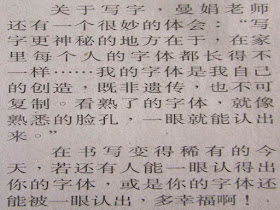 关于写字，曼娟老师
还有一个很妙的体会：“写
字更神秘的地方在于，在家
里每个人的字体都长得不
一样……我的字体是我自己
的创造，既非遗传，也不可
复制。看熟了的字体，就像
熟悉的脸孔，一眼就能认出
来。”
在书写变得稀有的今
天，若还有人能一眼认得出
你的字体，或是你的字体还
能被一眼认出，多幸福啊！